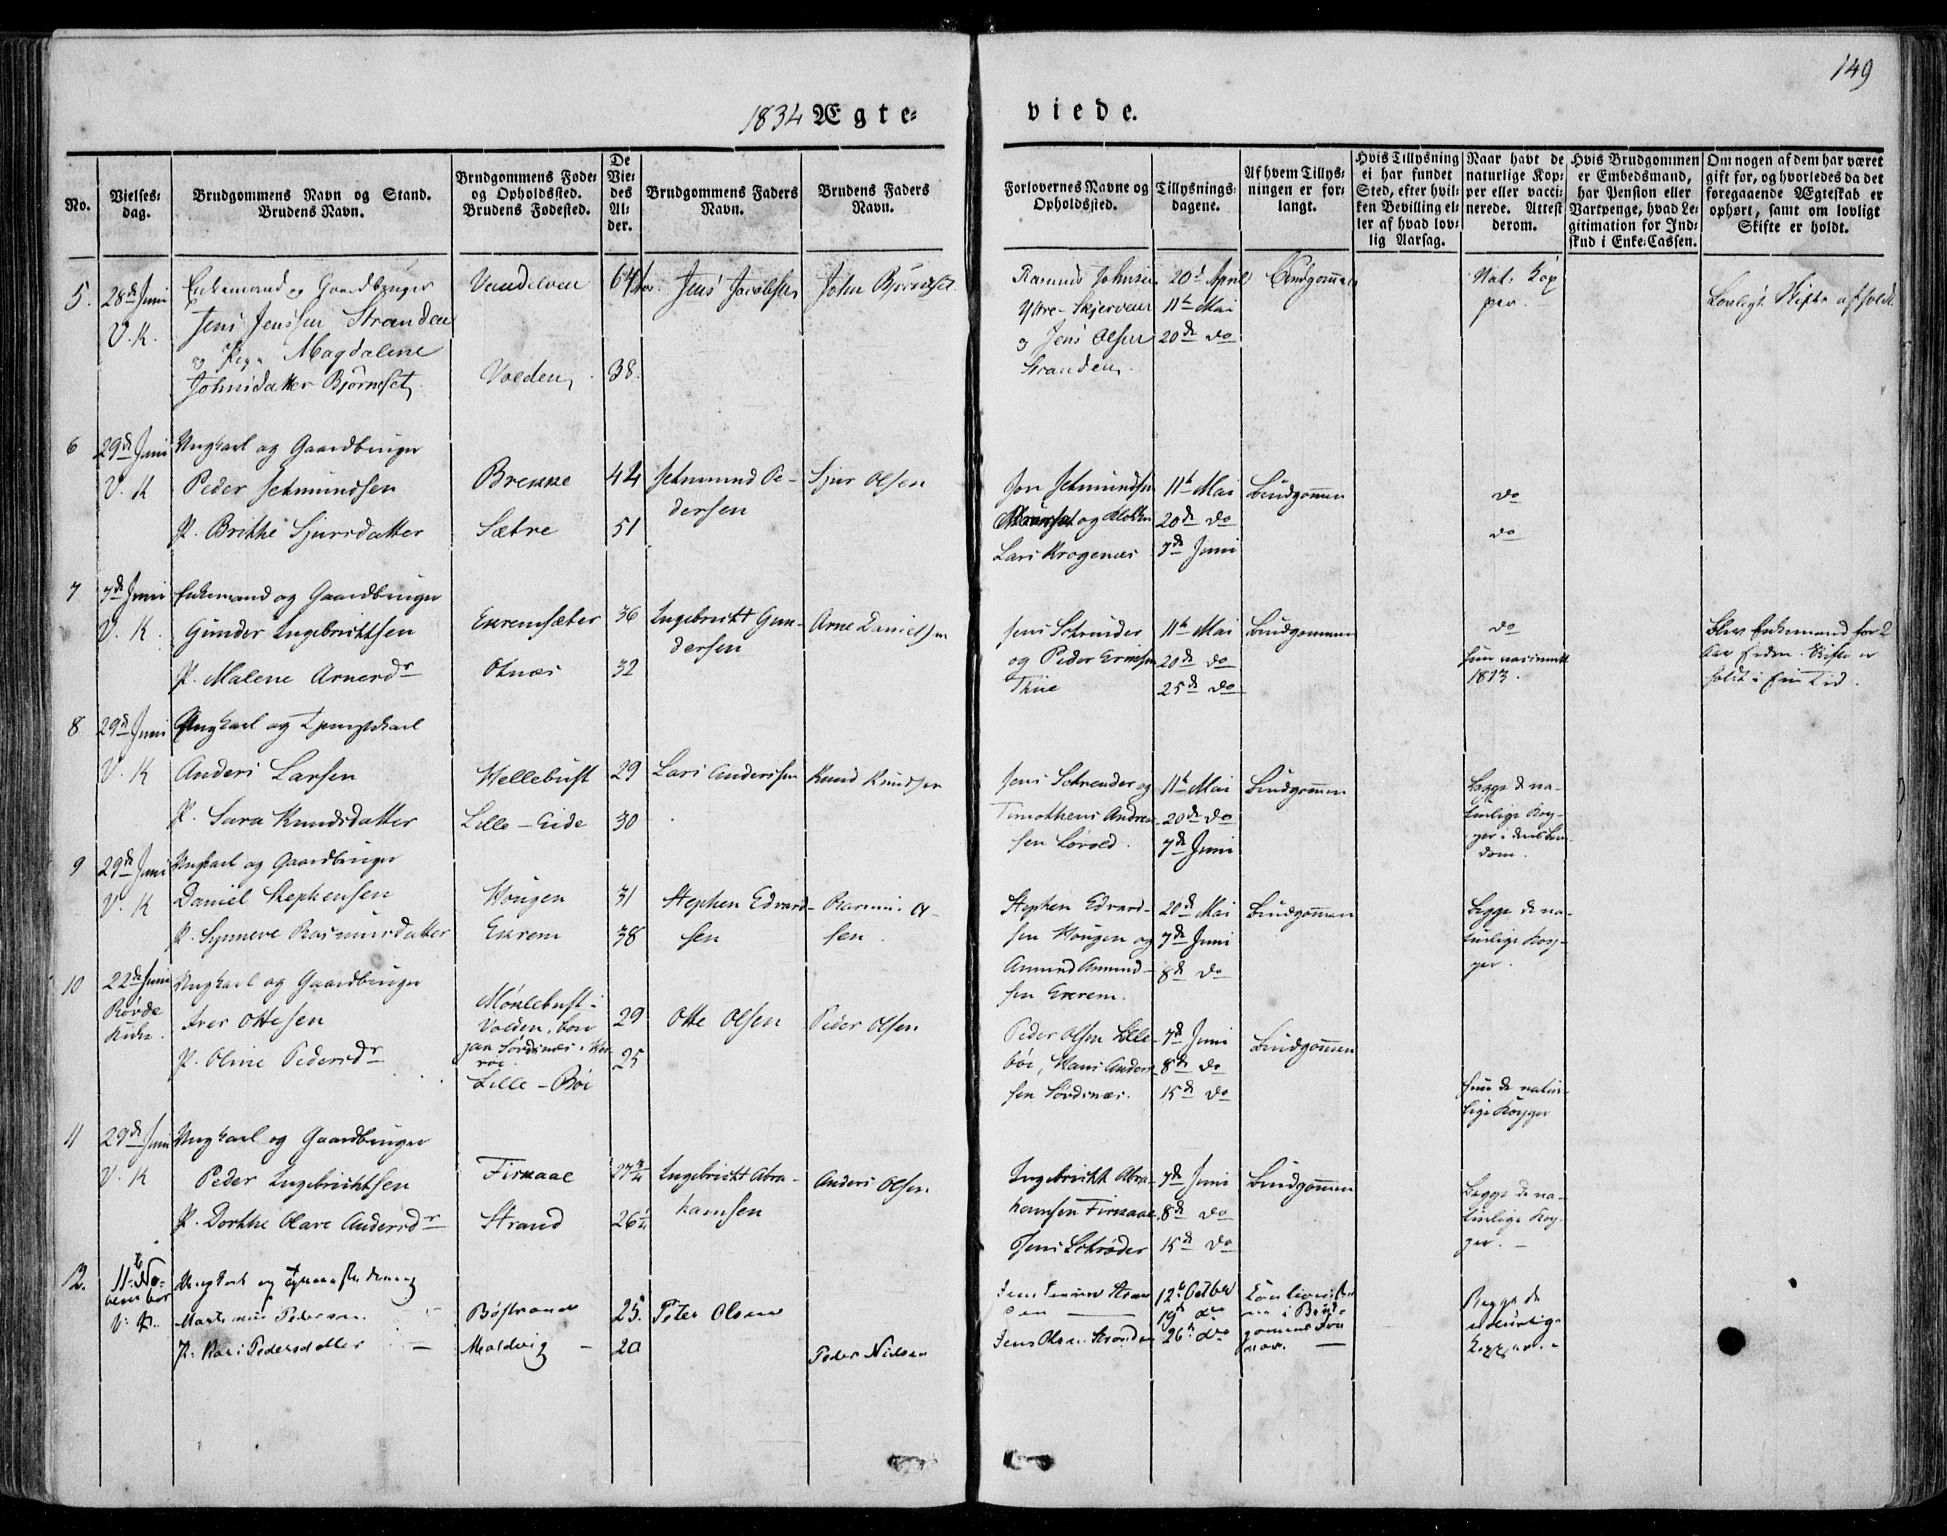 149
1834 Ægte- viede.
No.
Vielses-
dag.
Brudgommens Navn og Stand.
Brudens Navn.
Brudgommens Føde-
og Opholdssted.
Brudens Fødested.
De
Vie-
des
Al-
der.
Brudgommens Faders
Navn.
Brudens Faders
Navn.
Forlovernes Navne og
Opholdssted.
Tillysnings-
dagene.
Af hvem Tillys-
ningen er for-
langt.
Hvis Tillysning
ei har fundet
Sted, efter hvil-
ken Bevilling el-
ler af hvad lov-
lig Aarsag.
Naar havt de
naturlige Kop-
per eller vacci-
nerede. Attest
derom.
Hvis Brudgommen
er Embedsmand,
har Pension eller
Vartpenge, hvad Le-
gitimation for Ind-
skud i Enke-Cassen.
Om nogen af dem har været
gift for, og hvorledes da det
foregaaende Ægteskab er
ophørt, samt om lovligt
Skifte er holdt.
5. 28de Juni
V. K.
Enkemand og Gaardbruger
Jens Jenssen Stranden
og Pige Magdalene
Johnsdatter Bjørneset
Vandelven 64
Volden 38.
Jens Jacobsen
John Bjørneset
Rasmus Johnsen
Ytre-Skjerven
og Jens Olsen
Stranden.
20de April
11te Mai
20de do
Brudgommen
Nat. Kop
per.
Lovligt Skifte afholdt
6 29de Juni
V. K
Ungkarl og Gaardbruger
Peder Sehmundsen
P. Brithe Sjursdatter
Brekke 42
Sætre 51
Sehmund Pe-
dersen
Sjur Olsen
Jon Sehmundsen
og Klokker
Lars Krogenæs
11te Mai
20de do
7de Juni
Brudgommen
do
do
7 7de Juni
V. K.
Enkemand og Gaardbruger
Gunder Ingebrichtsen
P. Malene Arnesdr
Exremsæter 36
Otnæs 32
Ingebricht Gun-
dersen
Arne Danielsen
Jens Schrøuder
og Peder
Thiie
11te Mai
20de do
25de do
Brudgommen
do
hun vaccineret
1813.
Blev Enkemand for 2
Aar siden. Skifte er
holdt i sin Tid.
8 29de Juni
V. K
Ungkarl og
Anders Larsen
P. Sara Knudsdatter
Hellebust 29
Lille-Eide 30
Lars Anderssen
Knud Knudsen
Jens Schreuder og
Timotheus Andrea-
sen Løvold.
11te Mai
20de do
7de Juni
Brudgommen
Begge de na-
turlige Kop-
per i deres Barn-
dom.
9 29de Juni
V. K
Ungkarl og Gaardbruger
Daniel Stephensen
P. Synneve Rasmusdatter
Hougen 31
Exrem 38
Stephen Edvard-
sen
Rasmus
sen.
Stephen Edvard-
sen Hougen og
Amund Amund-
sen Exrem.
20de Mai
7de Juni
8de do
Brudgommen
Begge de na-
turlige Kop-
per.
10 22de Juni
Røvde
Kirke.
Ungkarl og Gaardbruger
Iver Ottesen
P. Oline Pedersdr
Møklebust i
Volden, boer
paa Sørdsnæs i Her-
røe.
Lille-Bøe
29
25
Otte Olsen
Peder Olsen
Peder Olsen Lille-
bøe, Hans Ander-
sen Sørdsnæs.
7de Juni
8de do
15de do
Brudgommen
hun de natur-
lige Kopper
11 29de Juni
V. K
Ungkarl og Gaardbruger
Peder Ingebrichtsen
P. Dorthe Olave Andersdr
Firkaae 27 3/4
Strand 26 1/4
Ingebricht Abra-
hamsen
Anders Olsen
Ingebricht Abra-
hamsen Firkaae
Jens Schrøder
7de Juni
8de do
15de do
Brudgommen
Begge de na-
turlige Kop-
per.
12. 11te No-
vember
V. K.
Ungkarl og
Martinus Pedersen
P. Kari Pedersdatter
Bøstrand 25.
Moldvig 20
Peter Olsen
Peder Nielsen
Jens Olsen Stranden
12te Octber
19de do
26te do
i Brud-
gommens Fra
vær.
Begge de
naturlige
Kopper.